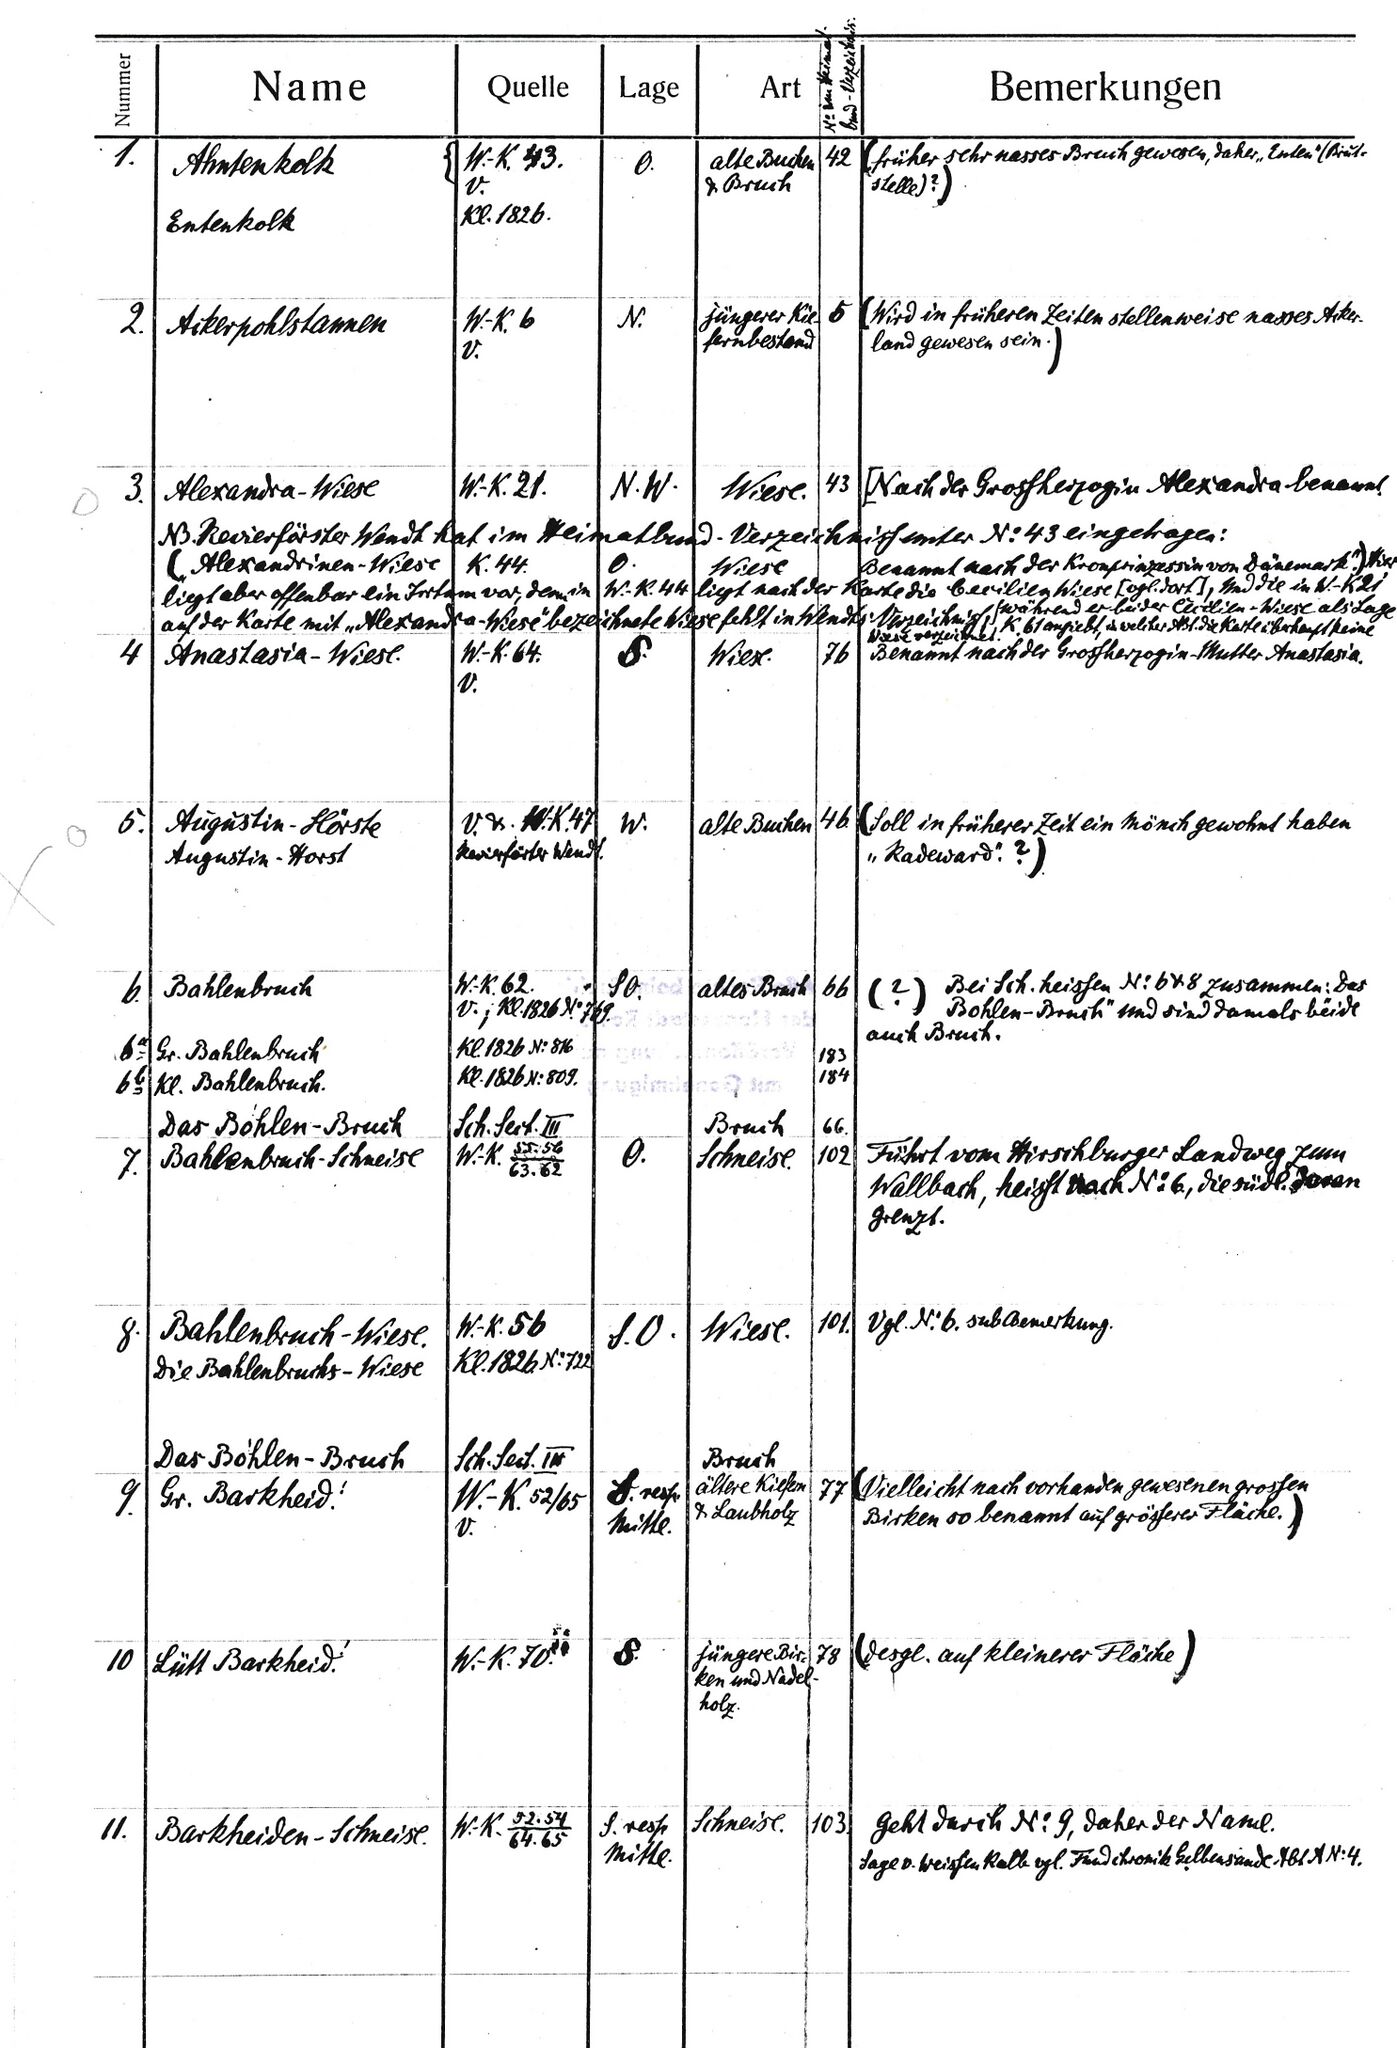 Nummer Name Quelle Lage Art No im Heimatbund-Verzeichnis. Bemerkungen
1. Ahntenkolk { W.-K. 43. O. alte Buchen 42 (früher sehr nasses Bruch gewesen, daher „Enten" (Brut-
V. & Bruch stelle)?)
Entenkolk Kl. 1826.
2. Ackerpohlstannen W.-K. 6 N. jüngerer Kie- 5 (Wird in früheren Zeiten stellenweise nasses Acker-
V. fernbestand land gewesen sein.)
3. Alexandra-Wiese W.-K. 21. N.W. Wiese. 43 [Nach der Grossherzogin Alexandra benannt.
NB. Revierförster Wendt hat im Heimatbund-Verzeichniss unter No. 43 eingetragen:
(„Alexandrinen-Wiese K. 44. O. Wiese Benannt nach der Kronprinzessin von Dänemark".) Hier
liegt aber offenbar ein Irrtum vor, denn in W.-K. 44 liegt nach der Karte die Cecilien Wiese [vgl. dort], und die in W.-K 21
auf der Karte mit „Alexandra-Wiese" bezeichnete Wiese fehlt in Wendts Verzeichniss, [während er bei der Cecilien-Wiese als Lage
K. 61 angiebt, in welcher Abt. die Karte überhaupt keine
Wiese verzeichnet.
4 Anastasia-Wiese. W.-K. 64. S. Wiese. 76 Benannt nach der Grossherzogin-Mutter Anastasia.
V.
5. Augustin-Hörste V. & W.-K. 47 W. alte Buchen 46 (Soll in früherer Zeit ein Mönch gewohnt haben
Augustin-Horst Revierförster Wendt. „Radeward". ?)
6. Bahlenbruch W.-K. 62. SO. altes Bruch 66 (?) Bei Sch. heissen No. 6 & 8 zusammen: Das
V.; Kl. 1826 No. 769. Bohlen-Bruch" und sind damals beide
auch Bruch.
6a Gr. Bahlenbruch Kl. 1826 No. 816 183
6b Kl. Bahlenbruch. Kl. 1826 No. 809. 184
Das Bohlen-Bruch Sch. Sect. III Bruch 66.
7. Bahlenbruch-Schneise W.-K. 55.56/63.62 O. Schneise. 102 Führt vom Hirschburger Landweg zum
Wallbach, heisst nach No. 6, die südl. daran
grenzt.
8. Bahlenbruch-Wiese. W.-K. 56 S.O. Wiese. 101. Vgl. No. 6. sub Bemerkung.
Die Bahlenbruchs-Wiese Kl. 1826 No. 722
Das Bohlen-Bruch Sch. Sect. III Bruch
9. Gr. Barkheid! W.-K. 52/65 S. resp. ältere Kiefern 77 (Vielleicht nach vorhanden gewesenen grossen
V. Mitte. & Laubholz Birken so benannt auf grösserer Fläche.)
10 Lütt Barkheid! W.-K. 70. S. jüngere Bir- 78 (desgl. auf kleinerer Fläche)
ken und Nadel-
holz.
11. Barkheiden-Schneise. W.-K. 52.54/64.65 S. resp Schneise. 103. Geht durch No. 9, daher der Name.
Mitte. Sage v. weissen Kalb vgl. Fundchronik Gelbensande Abt A No. 4.